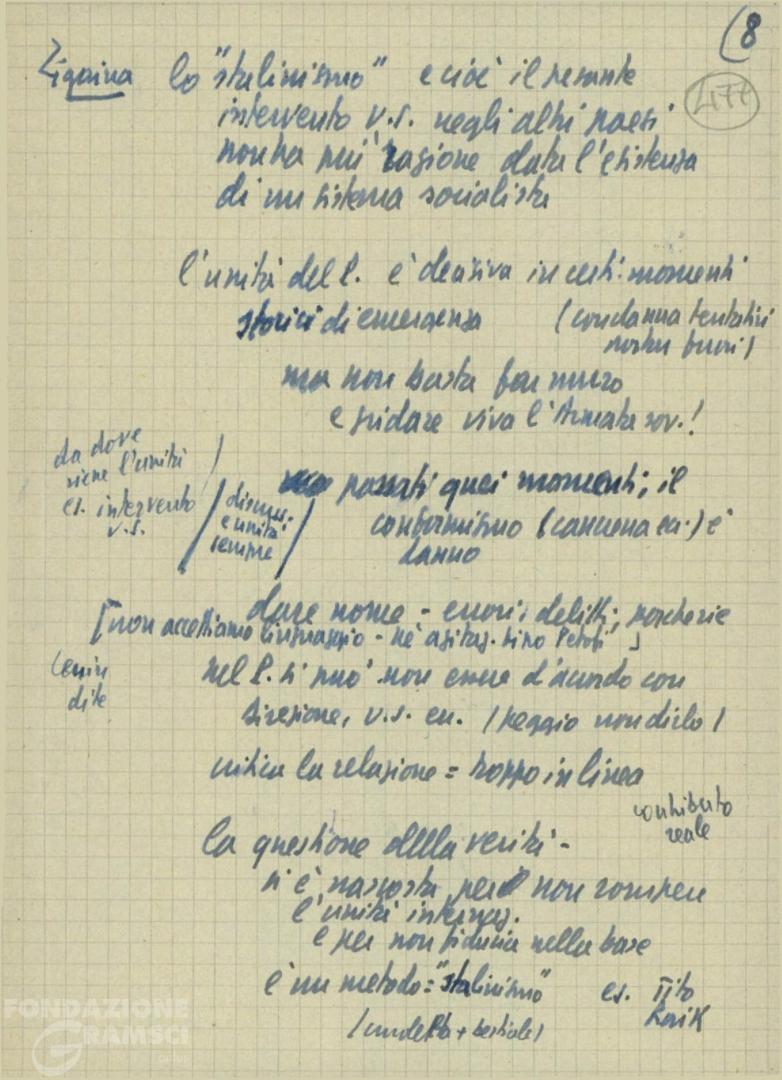 (8
477
Zigaina lo "stalinismo" e cioè il pesante
intervento U.S. negli altri paesi
non ha più ragione data l'esistenza
di un sistema socialista
l'unità del P. è decisiva in certi momenti
storici di emergenza (condanna tentativi
nostri fuori)
ma non basta far muro
e gridare viva l'Armata sov.!
da dove
viene l'unità
es. intervento
U.S.
discus.
e unità
sempre
passati quei momenti; il
conformismo (caserma ecc.) è
danno
dare nome - errori, delitti, porcherie
[non accettiamo linciaggio - né agitaz. tipo Petofi]
Lenin
dite
nel P. si può non essere d'accordo con
direzione, U.S. ecc. (peggio non dirlo)
critica la relazione = troppo in linea
contributo
reale
la questione della verità -
si è nascosta per non rompere
l'unità internaz.
e per non fiducia nella base
è un metodo = "stalinismo" es. Tito
Rajk
FONDAZIONE
GRAMSCI